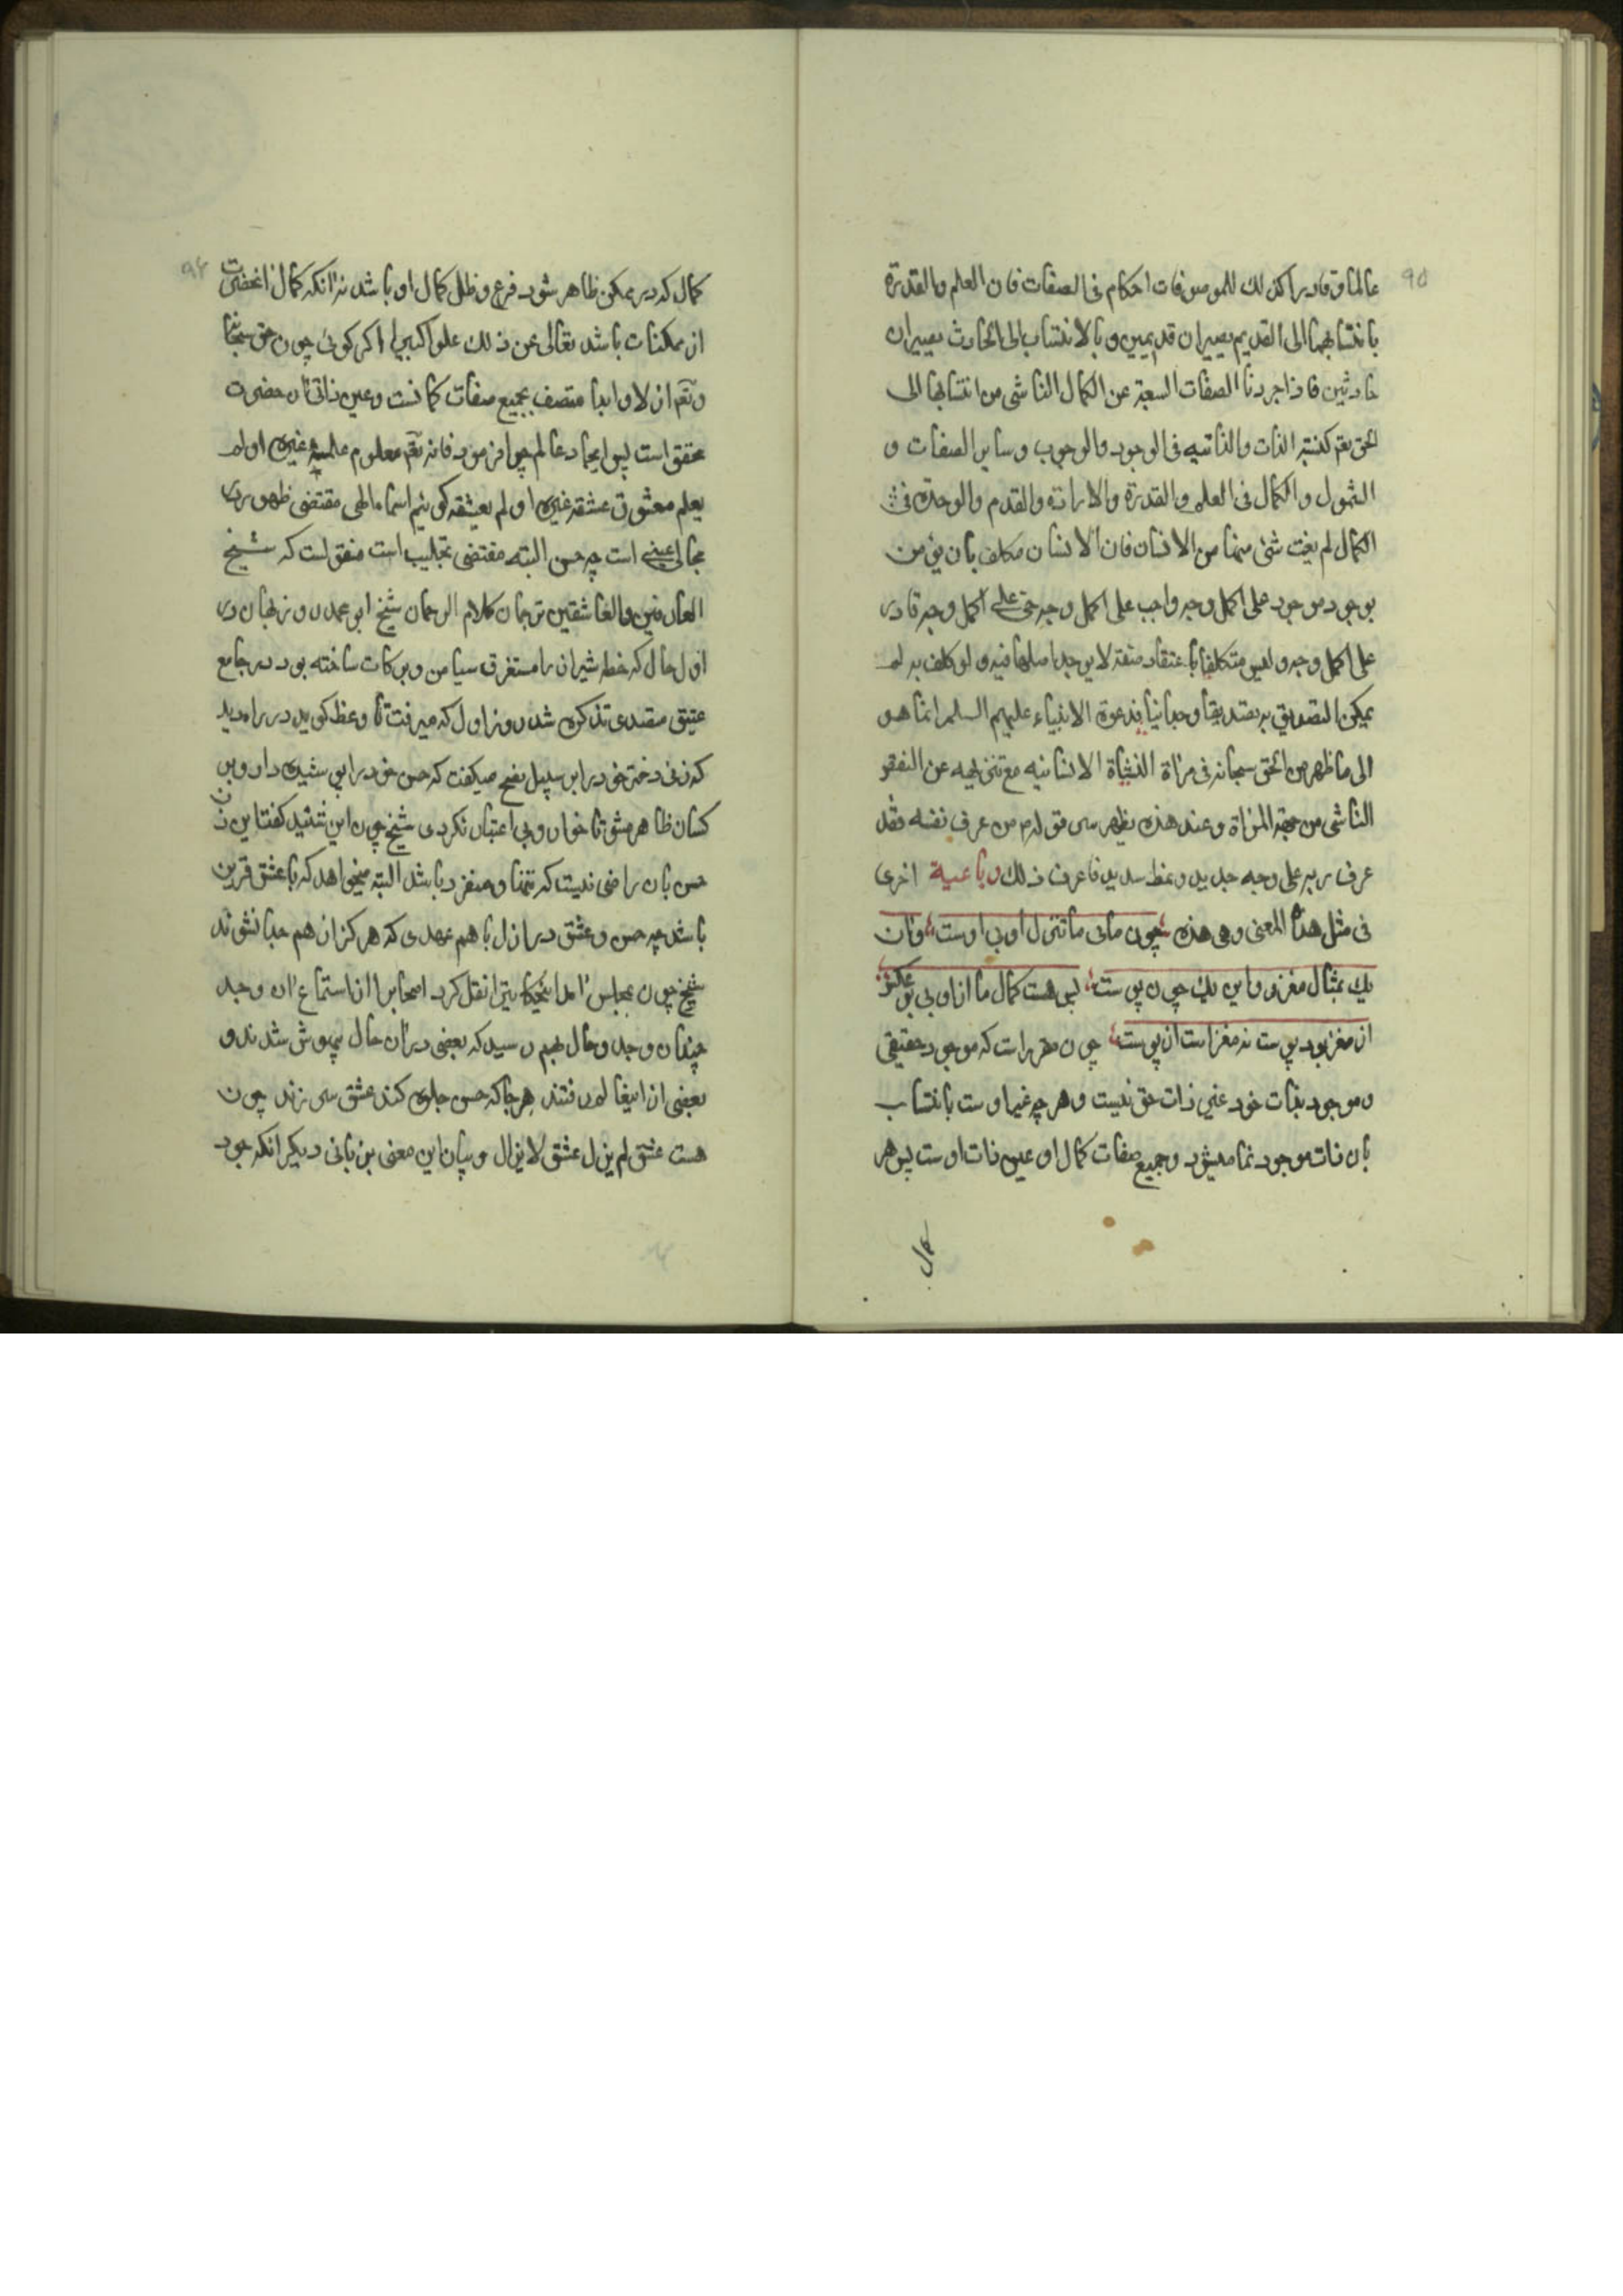 ۹۵
عالما و قادرا کذلک للموصوفات احکام فی الصفات فان العلم والقدرة
بانتسابهما الی القدیم یصیران قدیمین و بالانتساب الی الحادث یصیران
حادثین فاذا جردنا الصفات السبعة عن الکمال الناشی من انتسابها الی
الحق تعم کنسبة الذات والذاتیه فی الوجود والوجوب وسایر الصفات و
الشمول والکمال فی العلم والقدرة والارادة والقدم والوحدة فی
الکمال لم یفت شئ منها من الانسان فان الانسان مکلف بان یؤمن
بوجود موجود علی اکمل وجه واجب علی اکمل وجه حی علی اکمل وجه قادر
علی اکمل وجه ولیس متکلفا باعتقاد صفة لا یوجد اصلها فیه ولو کلف به لم
یمکن التصدیق به تصدیقا وجدانیا فدعوة الانبیاء علیهم السلم انما هو
الی ما ظهر من الحق سبحانه فی مراة النشاة الانسانیه مع تنزیهه عن النقص
الناشی من جهة المراة وعند هذه یظهر سر قوله م من عرف نفسه فقد
عرف ربه علی وجه جدید ونمط سدید فاعرف ذلک رباعیة اخری
فی مثل هذا المعنی وهی هذه چون مائی ما تنزل او بی اوست وان
یک بمثال مغز و این یک چون پوست پس هست کمال ما ازو بی عکس
از مغز بود پوست نه مغز است از پوست چون مقرر است که موجود حقیقی
و موجود بذات خود غیر ذات حق نیست و هر چه غیر اوست بانتساب
بان ذات موجود نما میشود و جمیع صفات کمال او عین ذات اوست پس هر
کمال
۹۶
کمال که در ممکن ظاهر شود فرع و ظل کمال او باشد نه انکه کمال انحضرت
از ممکنات باشد تعالی عن ذلک علوا کبیرا اکر کوئی چون حق سبحانه
وتعم ازلا و ابدا متصف بجمیع صفات کمالست و عین ذاتی ان حضرت
محقق است پس ایجاد عالم چرا فرمود فانه تعم معلوم علمه غیره او لم
یعلم معشوق عشقه غیره او لم یعشقه کویم اسماء الهی مقتضی ظهور در
مجالی عینی است چه حسن البته مقتضی تجلیست منقولست که شیخ
العارفین والعاشقین ترجمان کلام الرحمان شیخ ابو محمد روزبهان در
اول حال که خطه شیراز را مستغرق میامن و برکات ساخته بود در جامع
عتیق متصدی تذکره شد روز اول که میرفت تا وعظ کوید در راه دید
که زنی دختر خود را بر سبیل نصح میکفت که حسن خود را بپوشیده دار و بر
کسان ظاهر مشو تا خوار و بی اعتبار نکردی شیخ چون این شنید کفت این زن
حسن بان راضی نیست که تنها و منفرد باشد البته میخواهد که با عشق قرین
باشد چه حسن و عشق در ازل با هم عهدی که هرکز از هم جدا نشوند
شیخ چون بمجلس امد این حکایت را نقل کرد اصحاب را از استماع ان وجد
چندان وجد و حال بهم رسید که بعضی در ان حال بیهوش شدند و
بعضی از اینعالم رفتند هرجا که حسن جلوه کند عشق سر زند چون
هست عشق لم یزل عشق لایزال و بیان این معنی بزبانی دیکر انکه جود